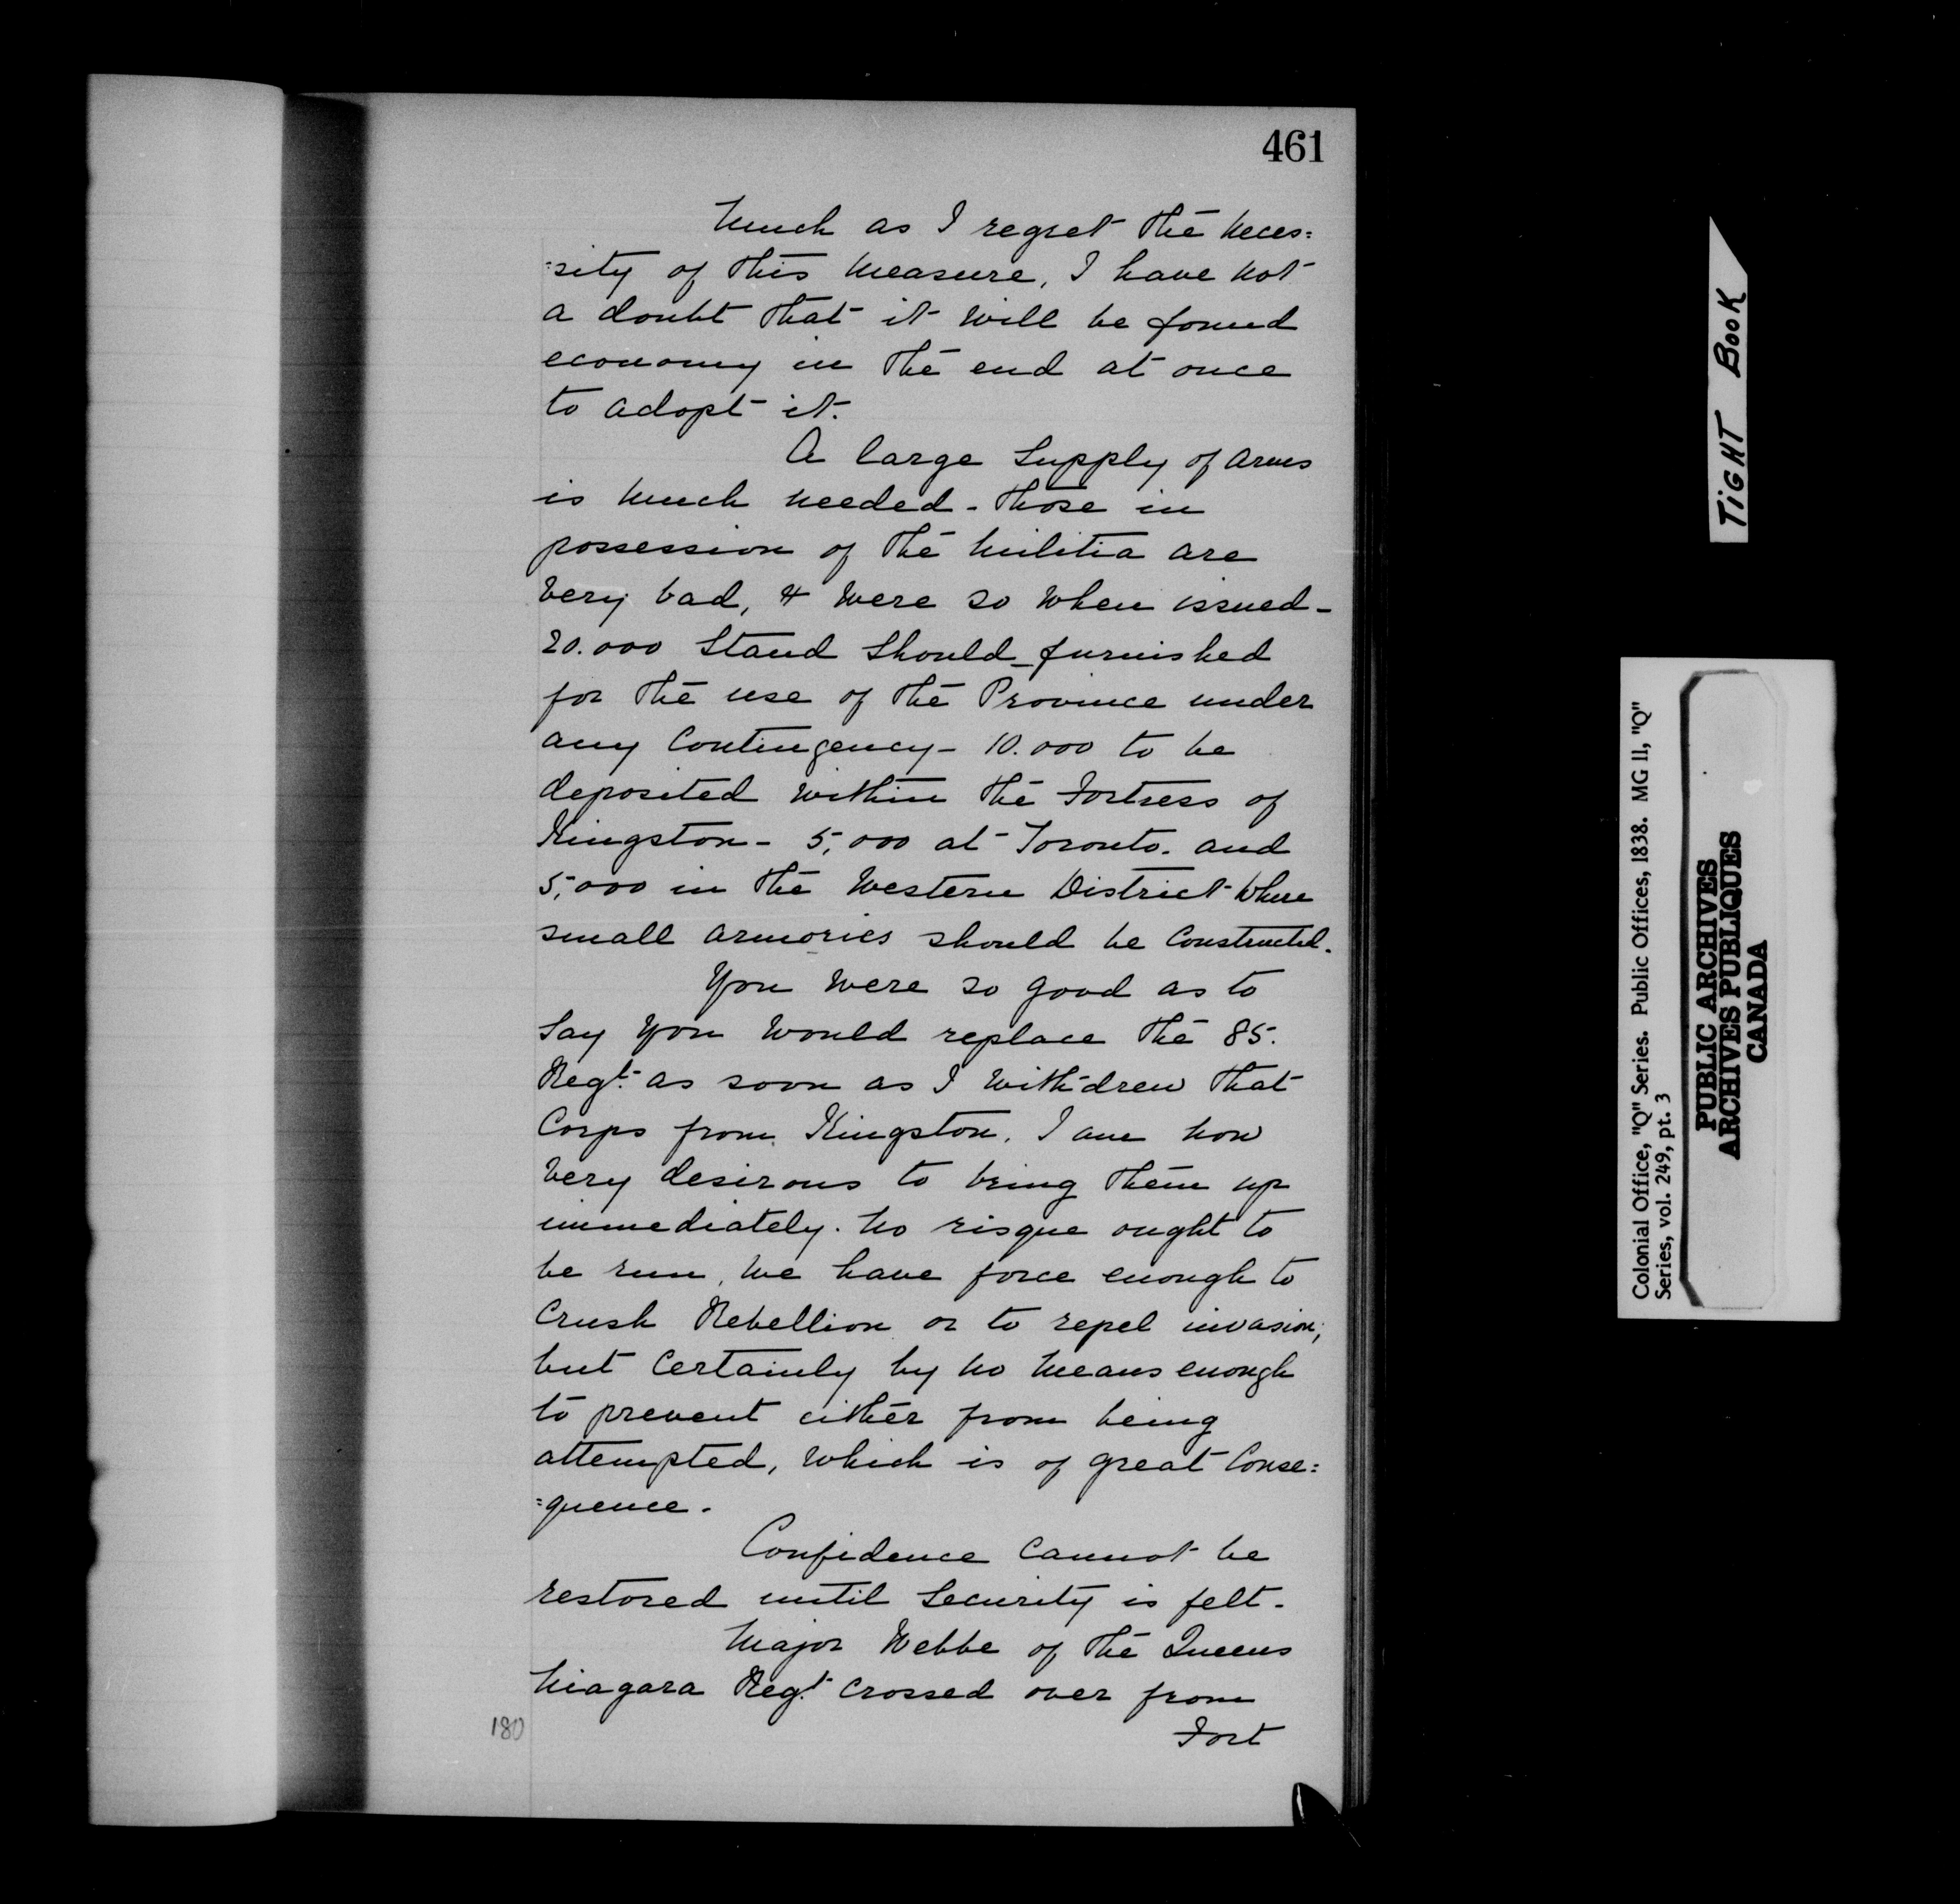 461
Much as I regret the neces=
=sity of this measure, I have not
a doubt that it will be found
economy in the end at once
to adopt it.
A large supply of arms
is much needed - those in
possession of the Militia are
very bad, & were so when issued -
20.000 Stand should_furnished
for the use of the Province under
any Contingency - 10.000 to be
deposited within the Fortress of
Kingston - 5,000 at Toronto. and
5,000 in the Western District where
small armories should be Constructed.
You were so good as to
say you would replace the 85.
Regt. as soon as I withdrew that
Corps from Kingston. I am now
very desirous to bring them up
immediately. No risque ought to
be run, We have force enough to
Crush Rebellion or to repel invasion;
but Certainly by no means enough
to prevent either from being
attempted, which is of great Conse=
=quence.
Confidence Cannot be
restored until Security is felt.
Major Webbe of the Queens
Niagara Regt. Crossed over from
Fort
180
TIGHT BOOK
Colonial Office, "Q" Series. Public Offices, 1838. MG 11, "Q"
Series, vol. 249, pt. 3
PUBLIC ARCHIVES
ARCHIVES PUBLIQUES
CANADA